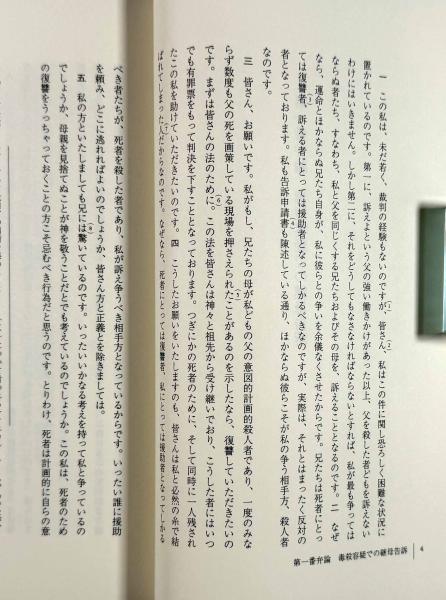 第一番弁論 毒殺容疑での継母告訴 4
一 この私は、未だ若く、裁判の経験もないのですが、皆さん、私はこの件に関し恐ろしく困難な状況に
置かれているのです。第一に、訴えよという父の強い働きかけがあった以上、父を殺した者どもを訴えない
わけにはいきません。しかし第二に、それをどうしてもなさなければならないとすれば、私が最も争っては
ならぬ者たち、すなわち、私と父を同じくする兄たちおよびその母を、訴えることとなるのです。二 なぜ
なら、運命とほかならぬ兄たち自身が、私に彼らとの争いを余儀なくさせたからです。兄たちは死者にとっ
ては復讐者、訴える者にとっては援助者となってしかるべきなのですが、実際は、それとはまったく反対の
者となっております。私も告訴申請書も陳述している通り、ほかならぬ彼らこそが私の争う相手方、殺人者
なのです。
三 皆さん、お願いです。私がもし、兄たちの母が私どもの父の意図的計画的殺人者であり、一度のみな
らず数度も父の死を画策している現場を押さえられたことがあるのを示したなら、復讐していただきたいの
です。まずは皆さんの法のために。この法を皆さんは神々と祖先から受け継いでおり、こうした者にはいつ
でも有罪票をもって判決を下すこととなっております。つぎにかの死者のために、そして同時に一人残され
たこの私を助けていただきたいのです。四 こうしたお願いをいたしますのも、皆さんは私と必然の糸で結
ばれてしまった人だからなのです。なぜなら、死者にとっては復讐者、私にとっては援助者となってしかる
べき者たちが、死者を殺した者であり、私が訴え争うべき相手方となっているからです。いったい誰に援助
を頼み、どこに逃れればよいのでしょうか、皆さん方と正義とを除きましては。
五 私の方といたしましても兄には驚いているのです。いったいいかなる考えを持って私と争っているの
でしょうか、母親を見捨てぬことが神を敬うことだとでも考えているのでしょうか。この私は、死者のため
の復讐をうっちゃっておくことの方こそ忌むべき行為だと思うのです。とりわけ、死者は計画的に自らの意